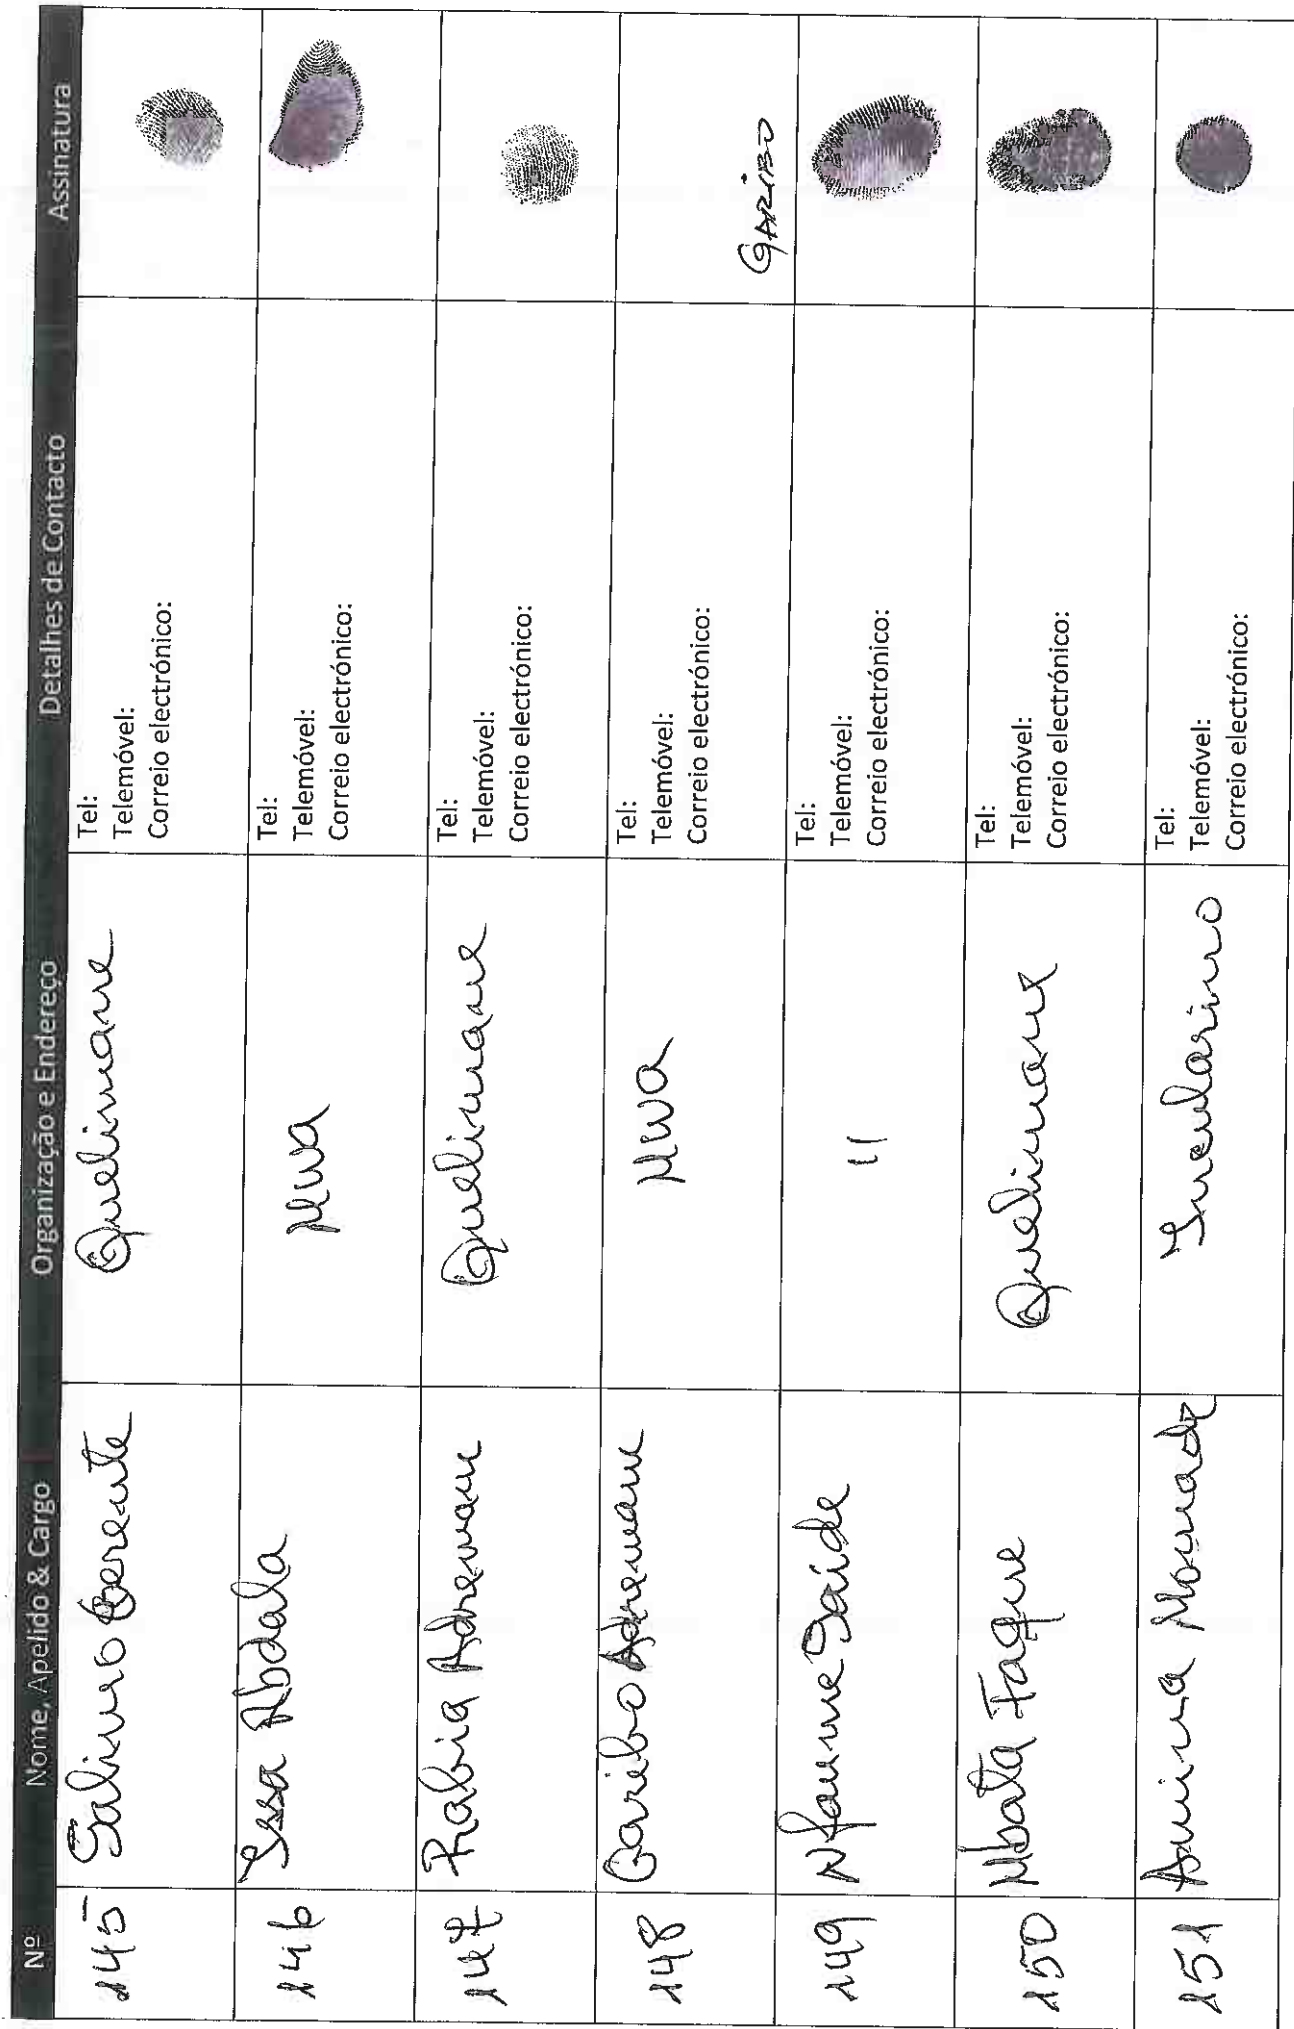 Nº Nome, Apelido & Cargo Organização e Endereço Detalhes de Contacto Assinatura
145 Salimo Gerente Quelimane Tel:
Telemóvel:
Correio electrónico:
146 Issa Abdala Mwa Tel:
Telemóvel:
Correio electrónico:
147 Rabia Adremane Quelimane Tel:
Telemóvel:
Correio electrónico:
148 Garibo Adremane Mwa Tel:
Telemóvel:
Correio electrónico:
GARIBO
149 Nfaume Saide 11 Tel:
Telemóvel:
Correio electrónico:
150 Mbata Faque Quelimane Tel:
Telemóvel:
Correio electrónico:
151 Amina Momade Tel:
Telemóvel:
Correio electrónico: